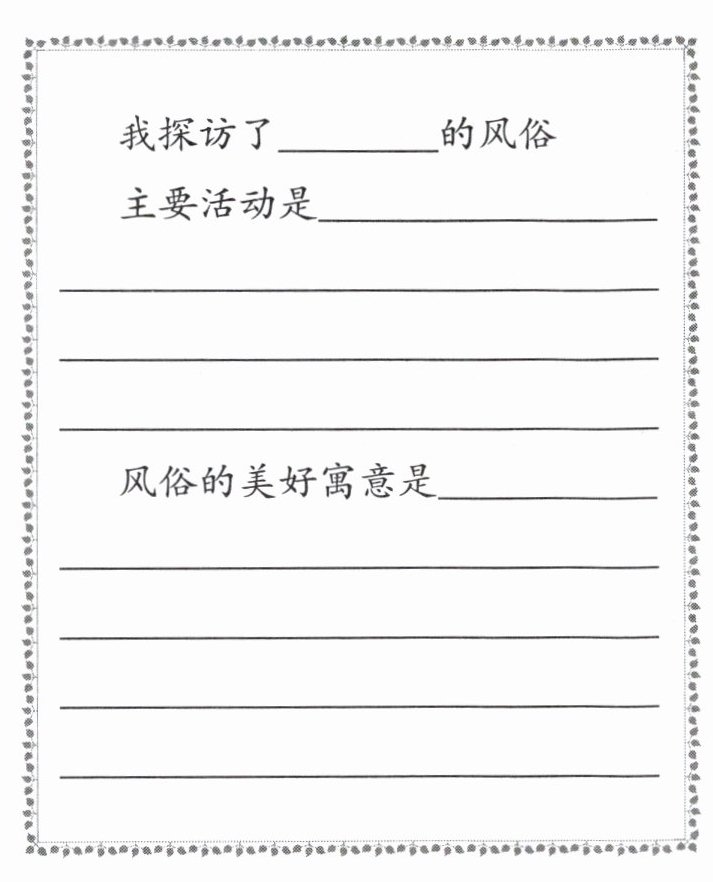 我探访了________的风俗
主要活动是
风俗的美好寓意是